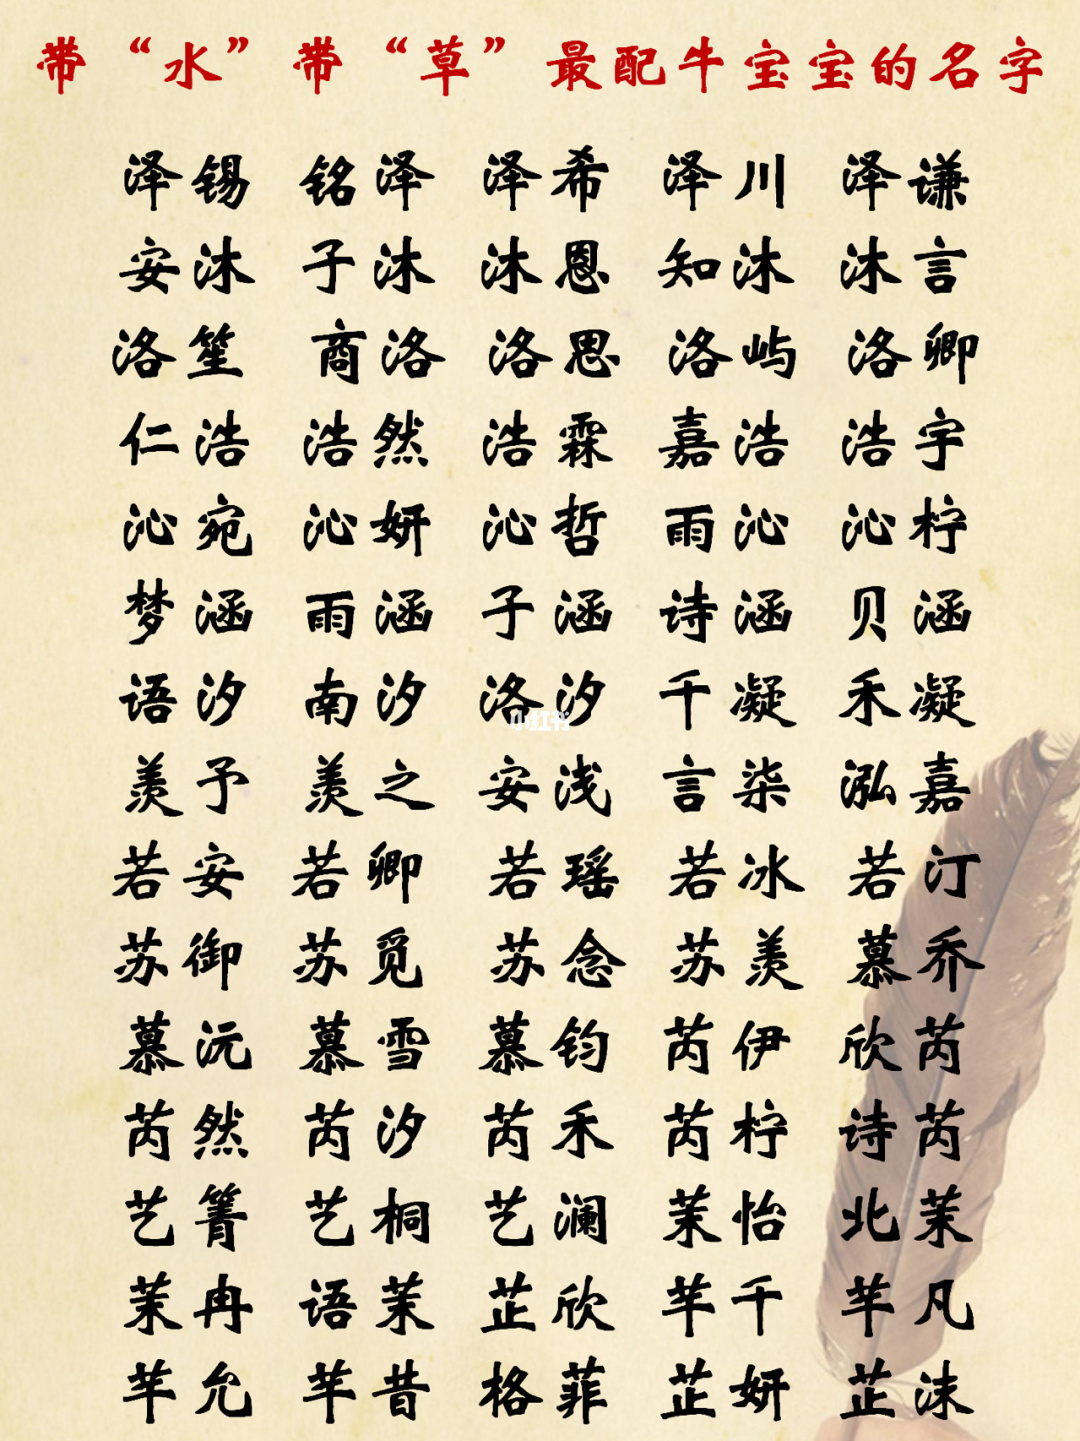 带“水”带“草”最配牛宝宝的名字
泽锡 铭泽 泽希 泽川 泽谦
安沐 子沐 沐恩 知沐 沐言
洛笙 商洛 洛思 洛屿 洛卿
仁浩 浩然 浩霖 嘉浩 浩宇
沁宛 沁妍 沁哲 雨沁 沁柠
梦涵 雨涵 子涵 诗涵 贝涵
语汐 南汐 洛汐 千凝 禾凝
小红书
羡予 羡之 安浅 言柒 泓嘉
若安 若卿 若瑶 若冰 若汀
苏御 苏觅 苏念 苏羡 慕乔
慕沅 慕雪 慕钧 芮伊 欣芮
芮然 芮汐 芮禾 芮柠 诗芮
艺箐 艺桐 艺澜 茉怡 北茉
茉冉 语茉 芷欣 芊千 芊凡
芊允 芊昔 格菲 芷妍 芷沫